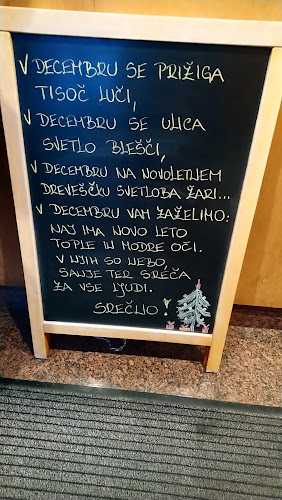 V DECEMBRU SE PRIŽIGA
TISOČ LUČI,
V DECEMBRU SE ULICA
SVETLO BLEŠČI,
V DECEMBRU NA NOVOLETNJEM
DREVEŠČKU SVETLOBA ŽARI...
V DECEMBRU VAM ZAŽELIMO:
NAJ IMA NOVO LETO
TOPLE IN MODRE OČI.
V NJIH SO NEBO,
SANJE TER SREČA
ZA VSE LJUDI.
SREČNO!